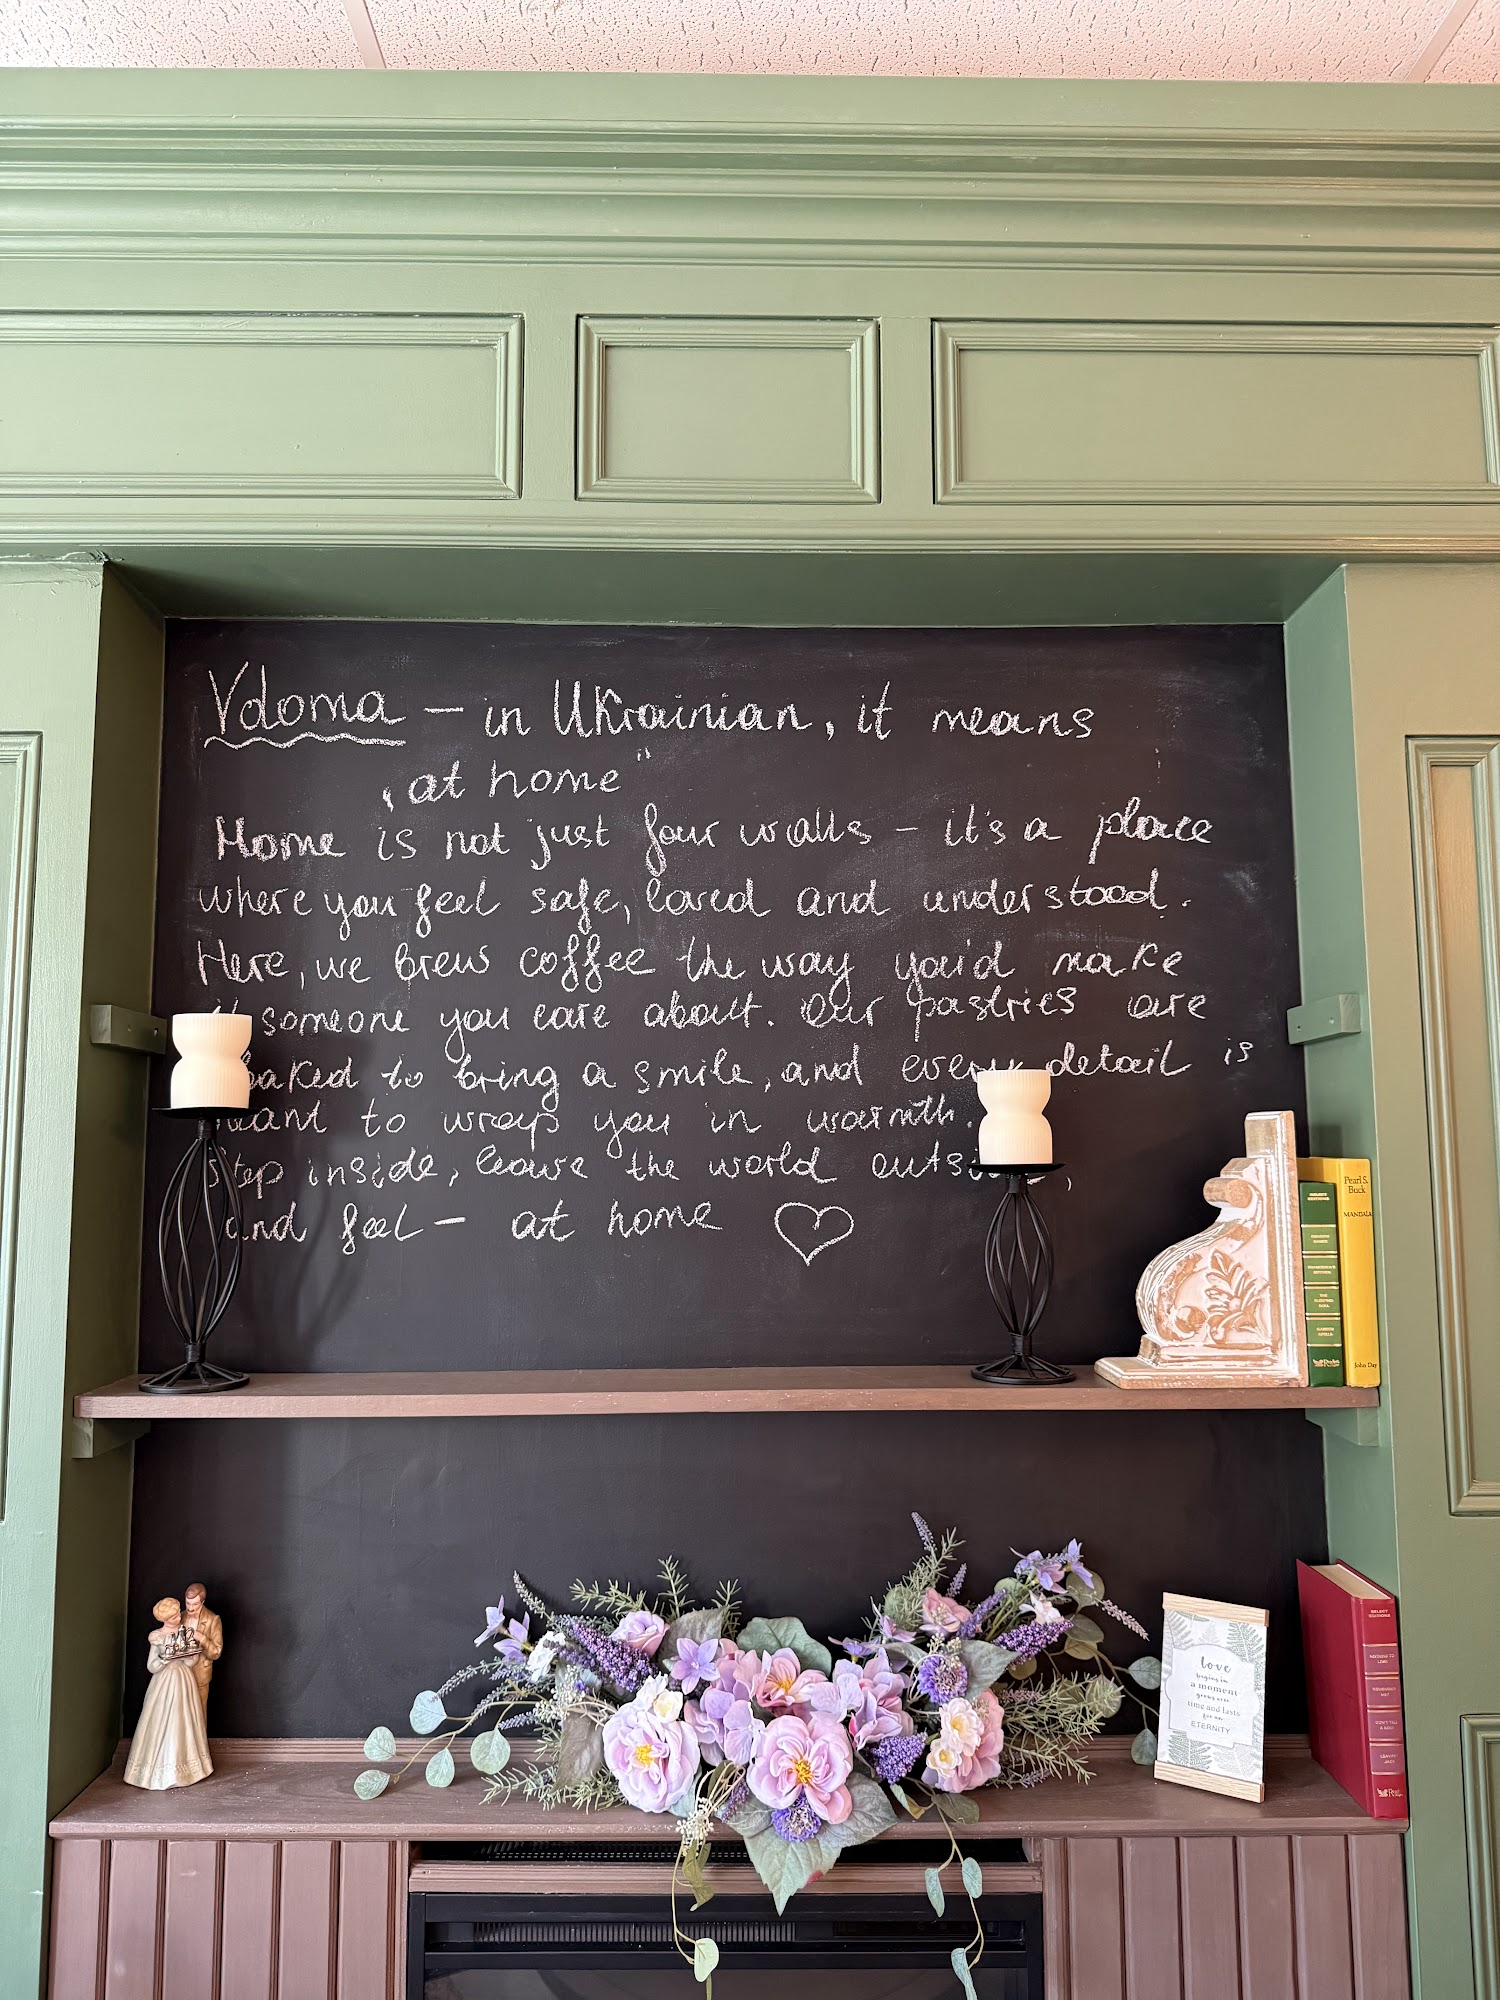 Vdoma — in Ukrainian, it means
„at home"
Home is not just four walls – it's a place
where you feel safe, loved and understood.
Here, we brew coffee the way you'd make
someone you care about. Our pastries are
baked to bring a smile, and every detail is
meant to wrap you in warmth.
Step inside, leave the world outside,
and feel — at home
Pearl S.
Buck
MANDALA
John Day
SELECT EDITIONS
love
begins in
a moment
grows over
time and lasts
for an
ETERNITY
SELECT EDITIONS